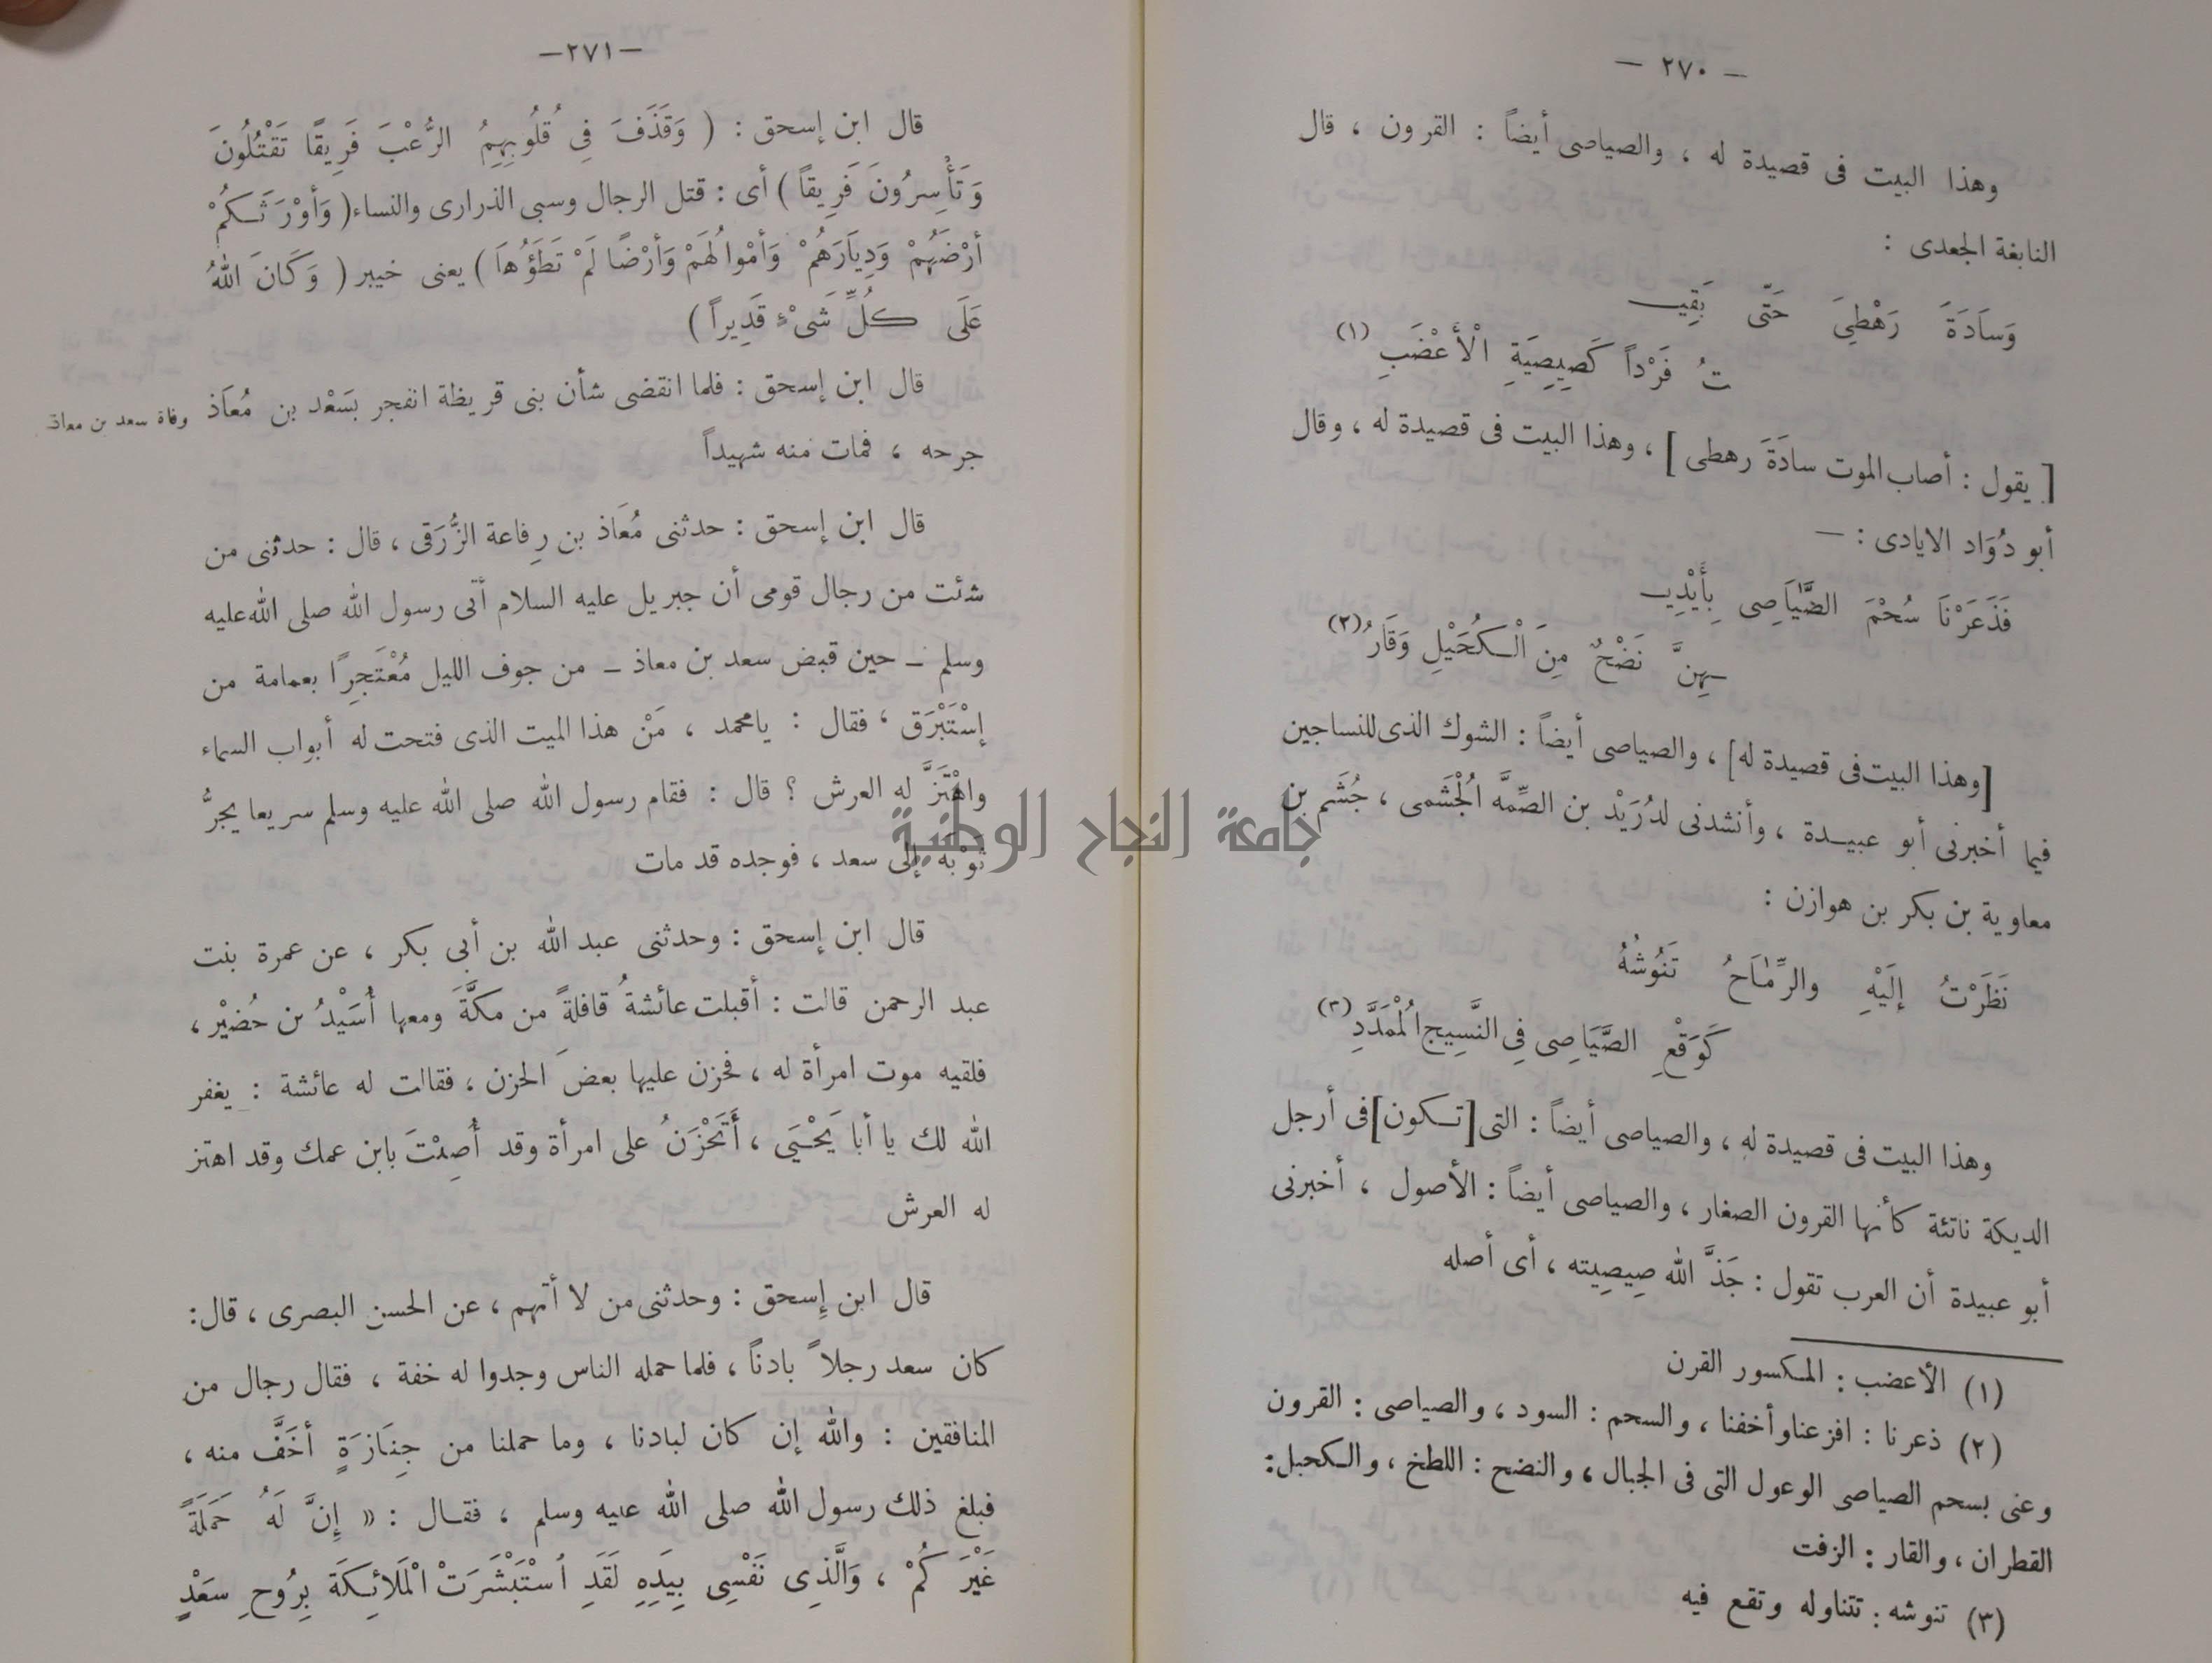 — ٢٧٠ —
وهذا البيت فى قصيدة له ، والصياصى أيضاً : القرون ، قال
النابغة الجعدى :
وَسَادَةَ رَهْطِىَ حَتّى بَقِيـ
ـتُ فَرْداً كَصِيصِيَةِ الْأَعْضَبِ (١)
[ يقول : أصاب الموت سادَةَ رهطى ] ، وهذا البيت فى قصيدة له ، وقال
أبو دُوَاد الايادى : —
فَذَعَرْنَا سُحْمَ الصَّيَاصِى بِأَيْدِيـ
ـهِنَّ نَضْحٌ مِنَ الْكُحَيْلِ وَقَارُ (٢)
[وهذا البيت فى قصيدة له] ، والصياصى أيضاً : الشوك الذى للنساجين
فيما أخبرنى أبو عبيدة ، وأنشدنى لدُرَيْد بن الصِّمَّه الْجُشَمى ، جُشَم بن
معاوية بن بكر بن هوازن :
نَظَرْتُ إِلَيْهِ والرِّمَاحُ تَنُوشُهُ
كَوَقْعِ الصَّيَاصِى فِى النَّسِيجِ الْمُمَدَّدِ (٣)
وهذا البيت فى قصيدة له ، والصياصى أيضاً : التى [تكون] فى أرجل
الديكة ناتئة كأنها القرون الصغار ، والصياصى أيضاً : الأصول ، أخبرنى
أبو عبيدة أن العرب تقول : جَذَّ الله صِيصِيته ، أى أصله
(١) الأعضب : المكسور القرن
(٢) ذعرنا : افزعنا وأخفنا ، والسحم : السود ، والصياصى : القرون
وعنى بسحم الصياصى الوعول التى فى الجبال ، والنضح : اللطخ ، والكحيل :
القطران ، والقار : الزفت
(٣) تنوشه : تتناوله وتقع فيه
—٢٧١—
قال ابن إسحق : ( وَقَذَفَ فِى قُلُوبِهِمُ الرُّعْبَ فَرِيقًا تَقْتُلُونَ
وَتَأْسِرُونَ فَرِيقاً ) أى : قتل الرجال وسبى الذرارى والنساء ( وَأَوْرَثَكُمْ
أَرْضَهُمْ وَدِيَارَهُمْ وَأَمْوالَهُمْ وَأَرْضًا لَمْ تَطَؤُهَا ) يعنى خيبر ( وَكَانَ اللهُ
عَلَى كُلِّ شَىْءٍ قَدِيراً )
قال ابن إسحق : فلما انقضى شأن بنى قريظة انفجر بسَعْد بن مُعَاذ
وفاة سعد بن معاذ
جرحه ، فمات منه شهيداً
قال ابن إسحق : حدثنى مُعَاذ بن رِفاعة الزُّرَقى ، قال : حدثنى من
شئت من رجال قومى أن جبريل عليه السلام أتى رسول الله صلى الله عليه
وسلم — حين قبض سعد بن معاذ — من جوف الليل مُعْتَجِرًا بعمامة من
إسْتَبْرَق ، فقال : يا محمد ، مَنْ هذا الميت الذى فتحت له أبواب السماء
واهْتَزَّ له العرش ؟ قال : فقام رسول الله صلى الله عليه وسلم سريعا يجرُّ
ثَوْبَهُ إلى سعد ، فوجده قد مات
قال ابن إسحق : وحدثنى عبد الله بن أبى بكر ، عن عمرة بنت
عبد الرحمن قالت : أقبلت عائشةُ قافلةً من مكَّةَ ومعها أُسَيْدُ بن حُضيْر ،
فلقيه موت امرأة له ، فحزن عليها بعضَ الحزن ، فقالت له عائشة : يغفر
الله لك يا أبا يَحْيَى ، أَتَحْزَنُ على امرأة وقد أُصِبْتَ بابن عمك وقد اهتز
له العرش
قال ابن إسحق : وحدثنى من لا أتهم ، عن الحسن البصرى ، قال :
كان سعد رجلاً بادناً ، فلما حمله الناس وجدوا له خفة ، فقال رجال من
المنافقين : والله إن كان لبادنا ، وما حملنا من جِنَازَةٍ أخَفَّ منه ،
فبلغ ذلك رسول الله صلى الله عليه وسلم ، فقال : « إِنَّ لَهُ حَمَلَةً
غَيْرَكُمْ ، وَالَّذِى نَفْسِى بِيَدِهِ لَقَدِ اسْتَبْشَرَتْ الْمَلَائِكَةَ بِرُوحِ سَعْدٍ
جامعة النجاح الوطنية